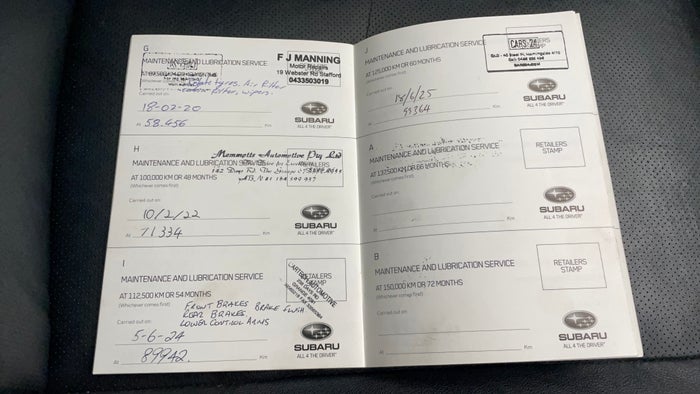 G
MAINTENANCE AND LUBRICATION SERVICE
(Whichever comes first)
tyres, Air filter
filter, wipers.
Carried out on:
18-02-20
At 58.456 Km
F J MANNING
Motor Repairs
19 Webster Rd Stafford
0433503019
SUBARU
ALL 4 THE DRIVER
H
MAINTENANCE AND LUBRICATION SERVICE
AT 100,000 KM OR 48 MONTHS
(Whichever comes first)
Automotive Pty Ltd
Carried out on:
10/2/22
At 71334 Km
SUBARU
ALL 4 THE DRIVER
I
MAINTENANCE AND LUBRICATION SERVICE
AT 112,500 KM OR 54 MONTHS
(Whichever comes first)
FRONT BRAKES BRAKE FLUSH
REAR BRAKES
LOWER CONTROL ARMS
Carried out on:
5-6-24
At 89942. Km
RETAILERS
STAMP
AUTOMOTIVE
SUBARU
ALL 4 THE DRIVER
J
MAINTENANCE AND LUBRICATION SERVICE
AT 125,000 KM OR 60 MONTHS
(Whichever comes first)
Carried out on:
18/6/25
At Km
CARS
SUBARU
ALL 4 THE DRIVER
A
MAINTENANCE AND LUBRICATION SERVICE
AT 137,500 KM OR 66 MONTHS
(Whichever comes first)
Carried out on:
At Km
RETAILERS
STAMP
SUBARU
ALL 4 THE DRIVER
B
MAINTENANCE AND LUBRICATION SERVICE
AT 150,000 KM OR 72 MONTHS
(Whichever comes first)
Carried out on:
At Km
RETAILERS
STAMP
SUBARU
ALL 4 THE DRIVER